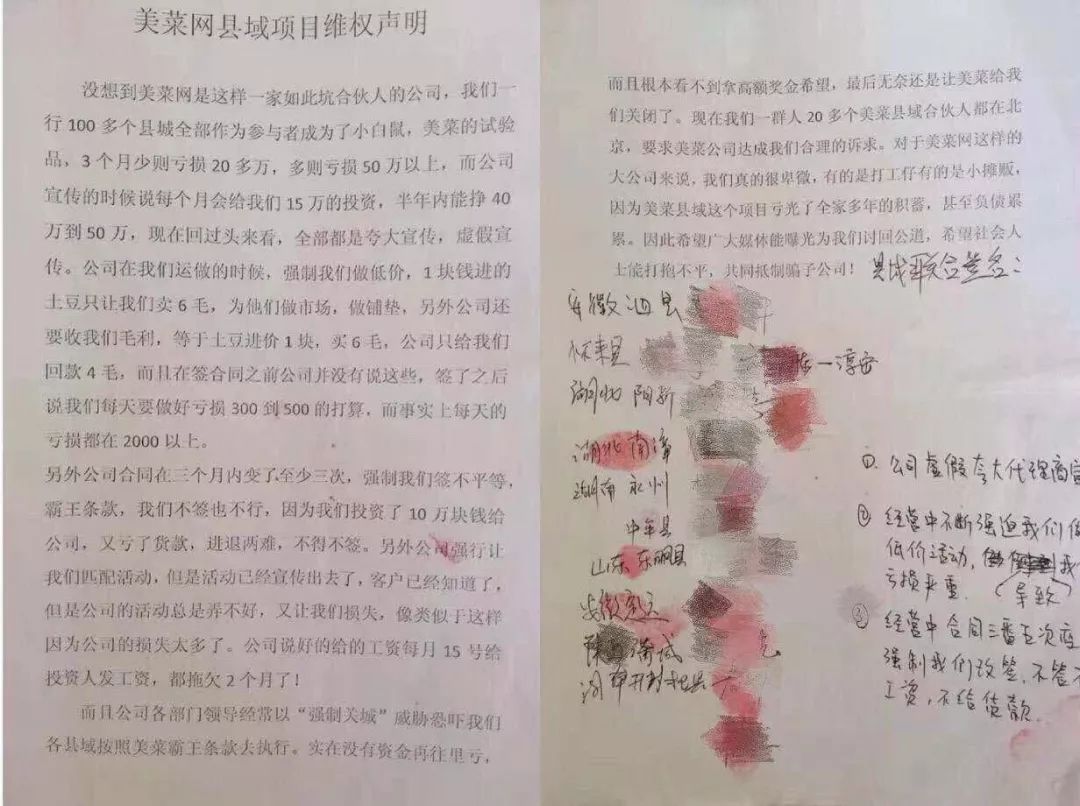 美菜网县域项目维权声明
没想到美菜网是这样一家如此坑合伙人的公司，我们一
行 100 多个县城全部作为参与者成为了小白鼠，美菜的试验
品，3 个月少则亏损 20 多万，多则亏损 50 万以上，而公司
宣传的时候说每个月会给我们 15 万的投资，半年内能挣 40
万到 50 万，现在回过头来看，全部都是夸大宣传，虚假宣
传。公司在我们运做的时候，强制我们做低价，1 块钱进的
土豆只让我们卖 6 毛，为他们做市场，做铺垫，另外公司还
要收我们毛利，等于土豆进价 1 块，买 6 毛，公司只给我们
回款 4 毛，而且在签合同之前公司并没有说这些，签了之后
说我们每天要做好亏损 300 到 500 的打算，而事实上每天的
亏损都在 2000 以上。
另外公司合同在三个月内变了至少三次，强制我们签不平等，
霸王条款，我们不签也不行，因为我们投资了 10 万块钱给
公司，又亏了货款，进退两难，不得不签。另外公司强行让
我们匹配活动，但是活动已经宣传出去了，客户已经知道了，
但是公司的活动总是弄不好，又让我们损失，像类似于这样
因为公司的损失太多了。公司说好的给的工资每月 15 号给
投资人发工资，都拖欠 2 个月了！
而且公司各部门领导经常以“强制关城”威胁恐吓我们
各县域按照美菜霸王条款去执行。实在没有资金再往里亏，
而且根本看不到拿高额奖金希望，最后无奈还是让美菜给我
们关闭了。现在我们一群人 20 多个美菜县域合伙人都在北
京，要求美菜公司达成我们合理的诉求。对于美菜网这样的
大公司来说，我们真的很卑微，有的是打工仔有的是小摊贩，
因为美菜县域这个项目亏光了全家多年的积蓄，甚至负债累
累。因此希望广大媒体能曝光为我们讨回公道，希望社会人
士能打抱不平，共同抵制骗子公司！
县域联合签名：
安徽泗县
淳安
湖北 阳新
湖北 南漳
湖南 永州
中牟县
山东 东明县
①. 公司虚假夸大代理商宣
② 经营中不断强迫我们做
低价活动, 我
亏损严重. （导致）
③ 经营中合同三番五次
强制我们改签, 不签不
工资, 不给货款.